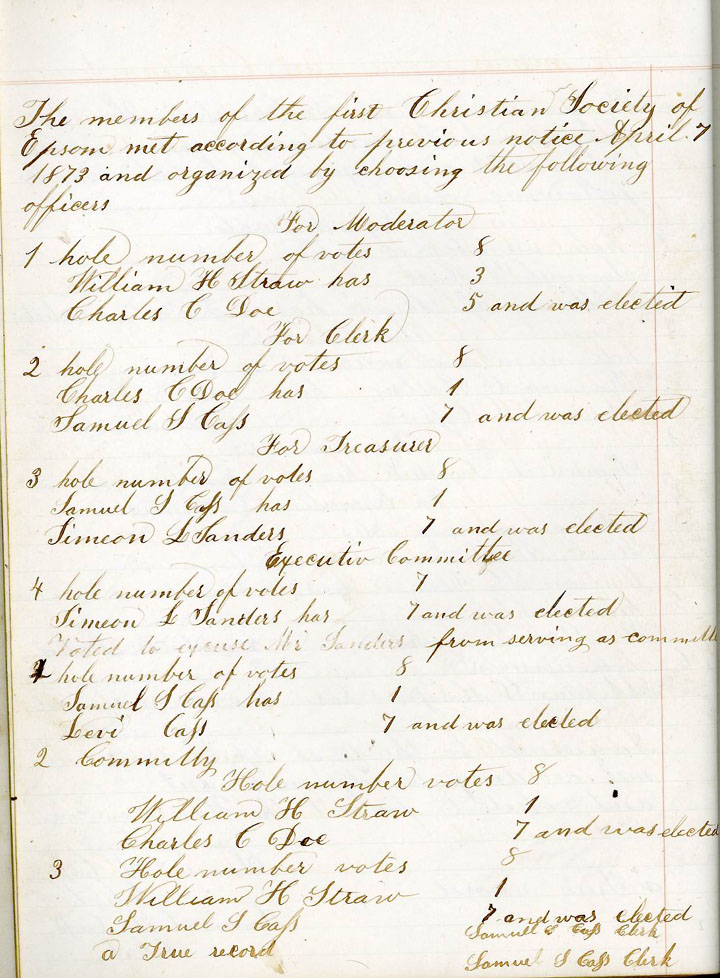 The members of the first Christian Society of
Epsom met according to previous notice April 7
1873 and organized by choosing the following
officers
For Moderator
1 hole number of votes 8
William H Straw has 3
Charles C Doe 5 and was elected
For Clerk
2 hole number of votes 8
Charles C Doe has 1
Samuel S Cass 7 and was elected
For Treasurer
3 hole number of votes 8
Samuel S Cass has 1
Simeon L Sanders 7 and was elected
Executiv Committee
4 hole number of votes 7
Simeon L Sanders has 7 and was elected
Voted to excuse Mr Sanders from serving as committe
1 hole number of votes 8
Samuel S Cass has 1
Levi Cass 7 and was elected
2 Committy
Hole number votes 8
William H Straw 1
Charles C Doe 7 and was elected
3 Hole number votes 8
William H Straw 1
Samuel S Cass 7 and was elected
Samuel S Cass Clerk
a True record Samuel S Cass Clerk